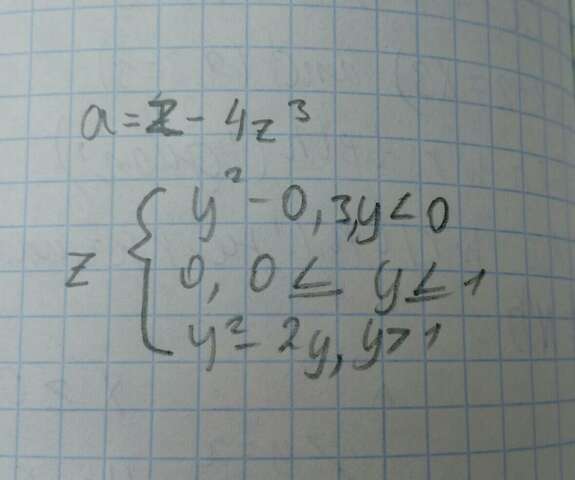 a = z - 4z³
z { y² - 0,3, y < 0
0, 0 ≤ y ≤ 1
y² - 2y, y > 1